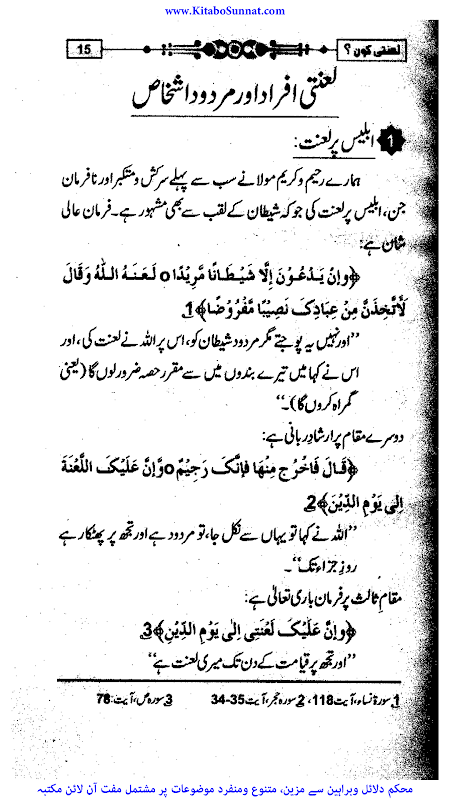 www.KitaboSunnat.com
لعنتی کون ؟
15
لعنتی افراد اور مردود اشخاص
1 ابلیس پر لعنت:
ہمارے رحیم و کریم مولا نے سب سے پہلے سرکش و متکبر اور نافرمان
جن، ابلیس پر لعنت کی جو کہ شیطان کے لقب سے بھی مشہور ہے۔ فرمان عالی
شان ہے:
﴿وَإِنْ يَدْعُوْنَ إِلَّا شَيْطَانًا مَّرِيْدًا ٥ لَّعَنَهُ اللّٰهُ وَقَالَ
لَأَتَّخِذَنَّ مِنْ عِبَادِكَ نَصِيْبًا مَّفْرُوْضًا﴾ 1
’’اور نہیں یہ پوجتے مگر مردود شیطان کو، اس پر اللہ نے لعنت کی، اور
اس نے کہا میں تیرے بندوں میں سے مقرر حصہ ضرور لوں گا (یعنی
گمراہ کروں گا)۔‘‘
دوسرے مقام پر ارشاد ربانی ہے:
﴿قَالَ فَاخْرُجْ مِنْهَا فَإِنَّكَ رَجِيْمٌ ٥ وَّإِنَّ عَلَيْكَ اللَّعْنَةَ
إِلٰى يَوْمِ الدِّيْنِ﴾ 2
’’اللہ نے کہا تو یہاں سے نکل جا، تو مردود ہے اور تجھ پر پھٹکار ہے
روز جزاء تک‘‘۔
مقام ثالث پر فرمان باری تعالیٰ ہے:
﴿وَإِنَّ عَلَيْكَ لَعْنَتِى إِلٰى يَوْمِ الدِّيْنِ﴾ 3
’’اور تجھ پر قیامت کے دن تک میری لعنت ہے‘‘
1 سورۃ نساء، آیت 118، 2 سورہ حجر، آیت 35-34 3 سورہ ص، آیت: 78
محکم دلائل وبراہین سے مزین، متنوع ومنفرد موضوعات پر مشتمل مفت آن لائن مکتبہ